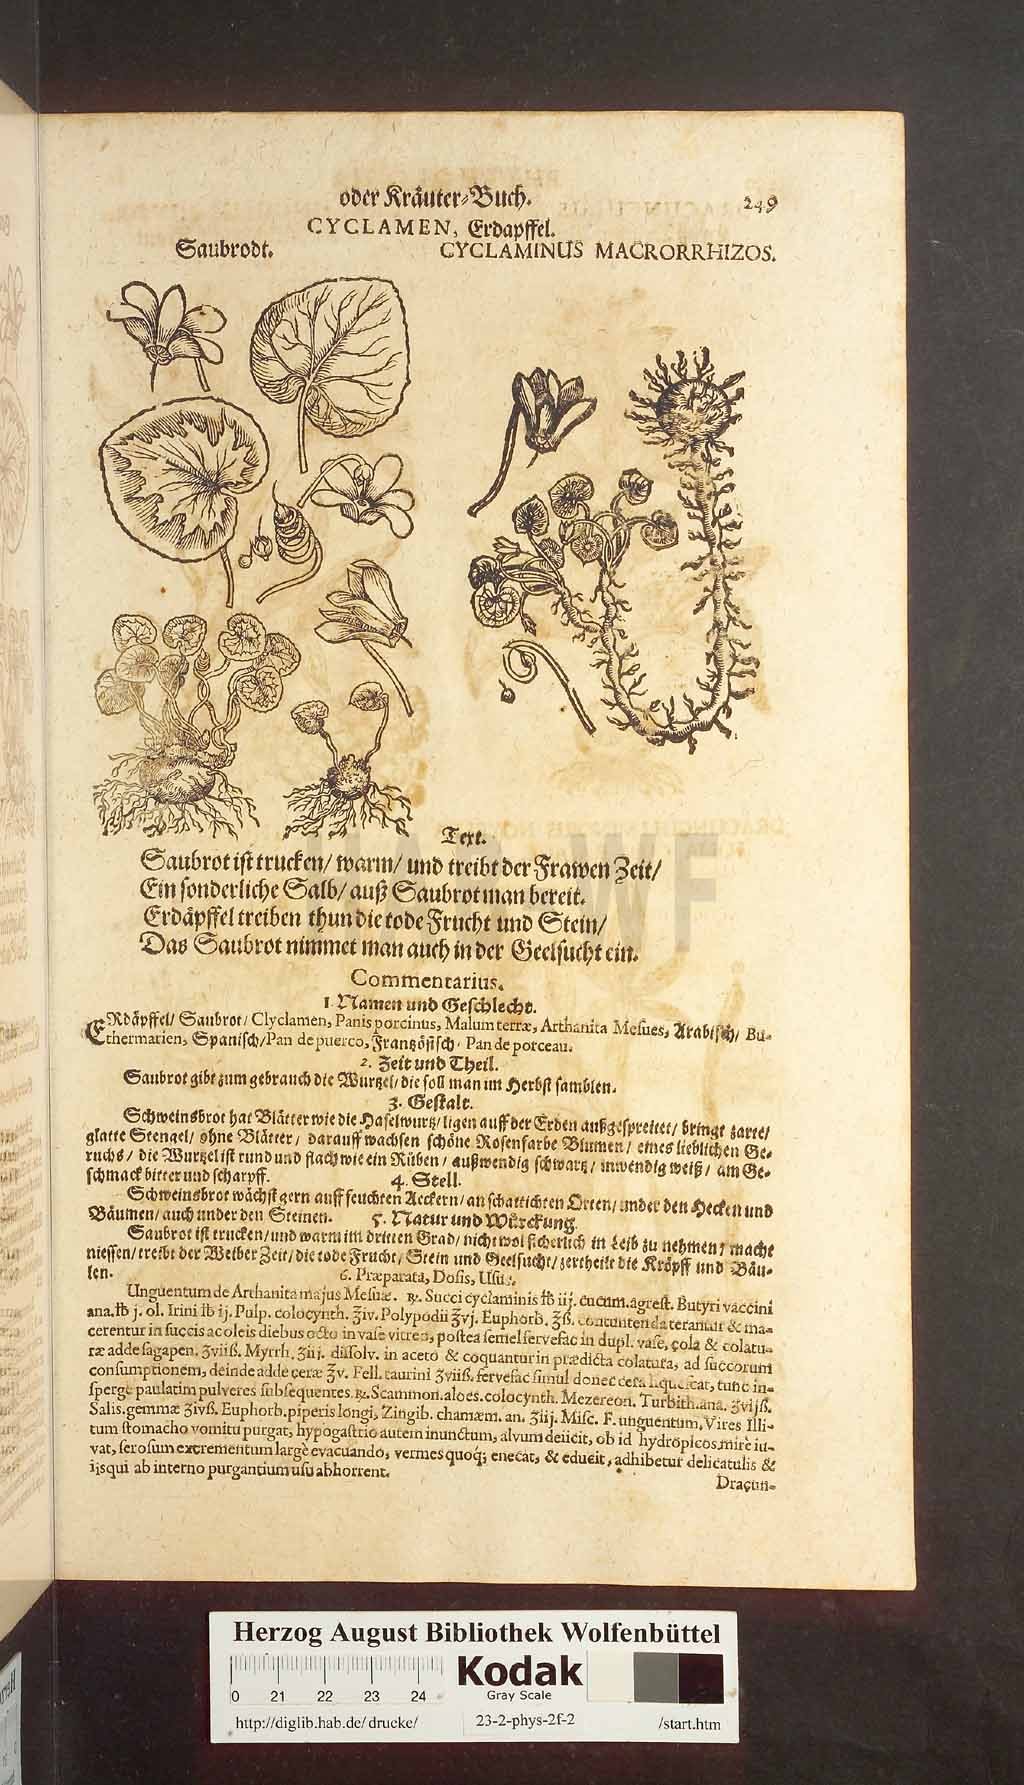 oder Kräuter-Buch. 249
CYCLAMEN, Erdapffel.
Saubrodt. CYCLAMINUS MACRORRHIZOS.
Text.
Saubrot ist trucken/ warm/ und treibt der Frawen Zeit/
Ein sonderliche Salb/ auß Saubrot man bereit.
Erdäpffel treiben thun die tode Frucht und Stein/
Das Saubrot nimmet man auch in der Geelsucht ein.
Commentarius.
1. Namen und Geschlecht.
ERdäpffel/ Saubrot/ Clyclamen, Panis porcinus, Malum terræ, Arthanita Mesues, Arabisch/ Bu-
thermarien, Spanisch/ Pan de puerco, Frantzösisch/ Pan de porceau.
2. Zeit und Theil.
Saubrot gibt zum gebrauch die Wurtzel/ die soll man im Herbst samblen.
3. Gestalt.
Schweinsbrot hat Blätter wie die Haselwurtz/ ligen auff der Erden außgespreitet/ bringt zarte/
glatte Stengel/ ohne Blätter/ darauff wachsen schöne Rosenfarbe Blumen/ eines lieblichen Ge-
ruchs/ die Wurtzel ist rund und flach wie ein Rüben/ außwendig schwartz/ inwendig weiß/ am Ge-
schmack bitter und scharpff. 4. Stell.
Schweinsbrot wächst gern auff feuchten Aeckern/ an schattichten Orten/ under den Hecken und
Bäumen/ auch under den Steinen. 5. Natur und Würckung
Saubrot ist trucken/ und warm im dritten Grad/ nicht wol sicherlich in Leib zu nehmen: macht
niessen/ treibt der Weiber Zeit/ die tode Frucht/ Stein und Geelsucht/ zertheilt die Kröpff und Bäu-
len. 6. Præparata, Dosis, Usus.
Unguentum de Arthanita majus Mesuæ. ℞. Succi cyclaminis ℔ iij. cucum. agrest. Butyri vaccini
ana. ℔ j. ol. Irini ℔ ij. Pulp. colocynth. ʒiv. Polypodii ʒvj. Euphorb. ʒß. contuntenda terantur & ma-
cerentur in succis ac oleis diebus octo in vase vitreo, postea semel servefac in dupl. vase, cola & colatu-
ræ adde sagapen. ʒviiß. Myrrh. ʒiij. dissolv. in aceto & coquantur in prædicta colatura, ad succorum
consumptionem, deinde adde ceræ ʒv. Fell. taurini ʒviiß. fervefac simul donec cera liquescat, tunc in-
sperge paulatim pulveres subsequentes. ℞. Scammon. aloes. colocynth. Mezereon. Turbith. ana. ʒvijß.
Salis. gemmæ ʒivß. Euphorb. piperis longi, Zingib. chamæm. an. ʒiij. Misc. F. unguentum, Vires Illi-
tum stomacho vomitu purgat, hypogastrio autem inunctum, alvum deiicit, ob id hydropicos mirè iu-
vat, serosum excrementum largè evacuando, vermes quoq; enecat, & educit, adhibetur delicatulis &
iisqui ab interno purgantium usu abhorrent.
Dracun-
HAB WF
Herzog August Bibliothek Wolfenbüttel
0 21 22 23 24
Kodak
Gray Scale
http://diglib.hab.de/drucke/ 23-2-phys-2f-2 /start.htm